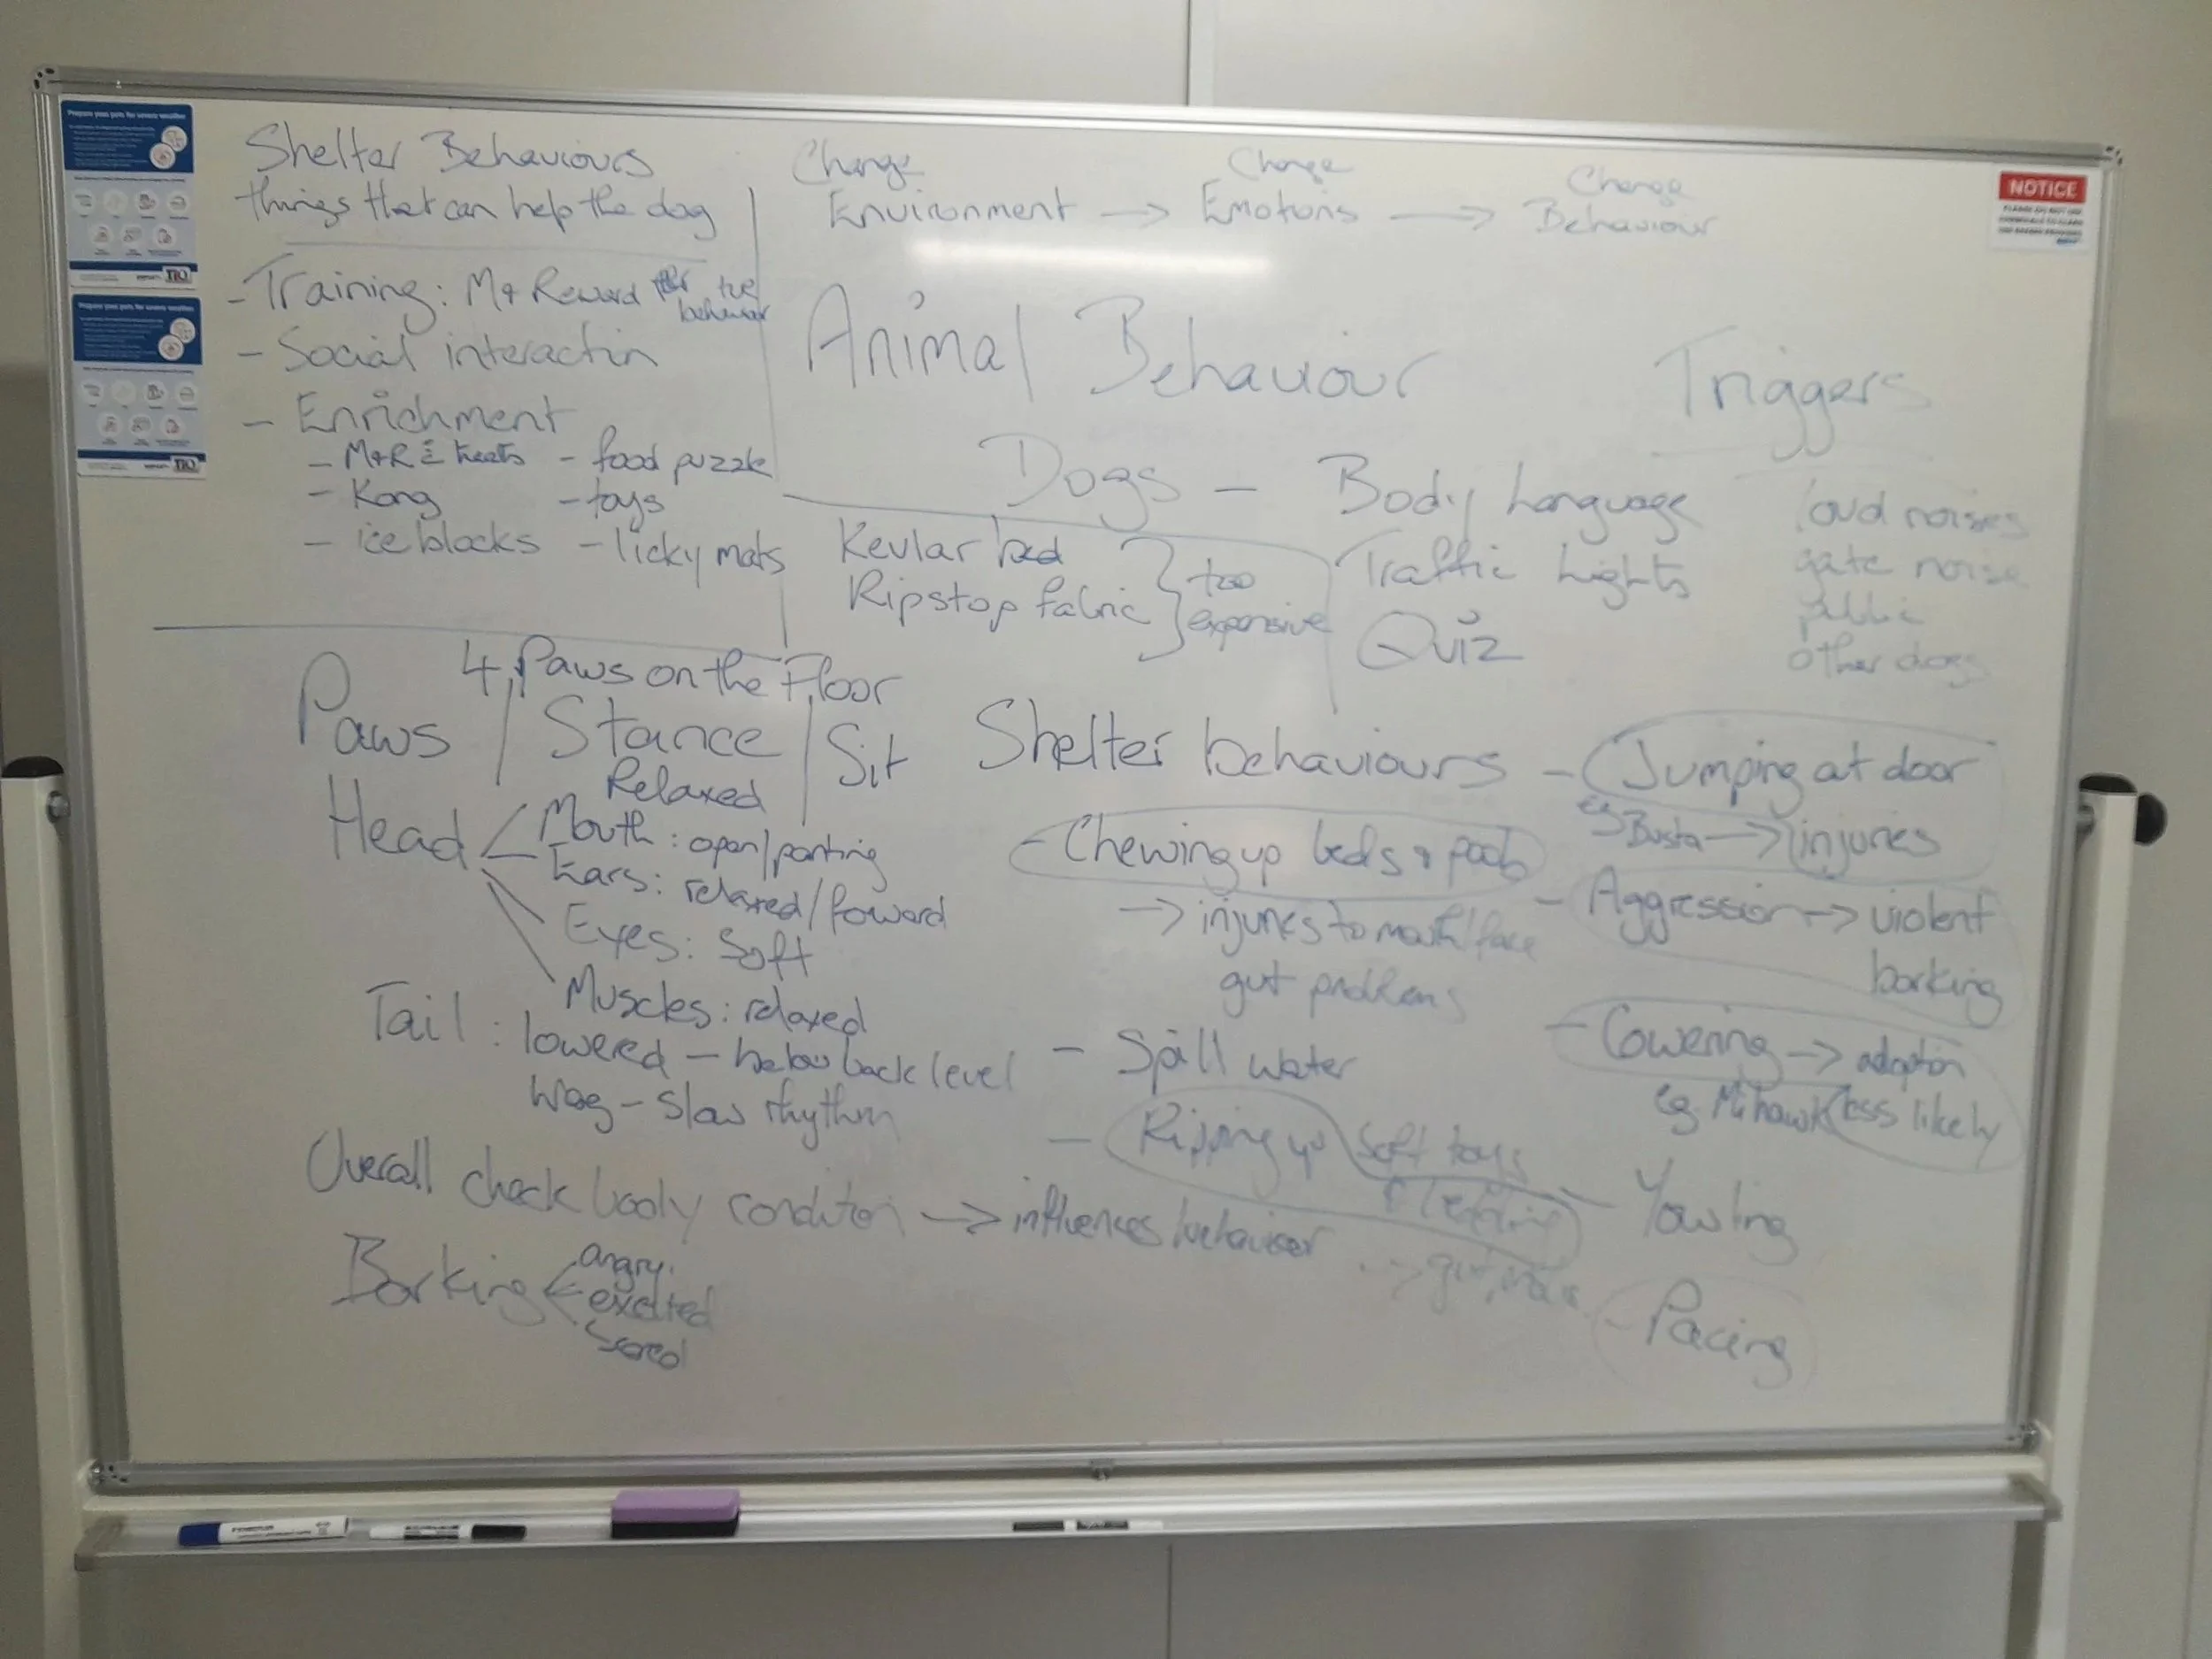 Shelter Behaviours
things that can help the dog
- Training: M+Reward for +ve
behaviour
- Social interaction
- Enrichment
- M+R & treats - food puzzle
- Kong - toys
- ice blocks - licky mats
Change Change Change
Environment -> Emotions -> Behaviour
Animal Behaviour
Dogs - Body Language
Traffic Lights
Quiz
Triggers
loud noises
gate noise
public
other dogs
Kevlar bed
Ripstop fabric } too expensive
4 Paws on the Floor
Paws / Stance / Sit
Relaxed
Head
Mouth: open/panting
Ears: relaxed/foward
Eyes: Soft
Muscles: relaxed
Tail: lowered - below back level
Wag - slow rhythm
Overall check body condition -> influences behaviour
Barking
angry
excited
scared
Shelter behaviours
- Chewing up beds &
-> injuries to mouth/face
gut problems
- Spill water
- Ripping up soft toys
- Jumping at door
eg Busta -> injuries
- Aggression -> violent
barking
- Cowering -> adoption
eg. Mihawk less likely
- Yowling
- Pacing
Prepare your pets for severe weather
TIO
Prepare your pets for severe weather
TIO
NOTICE